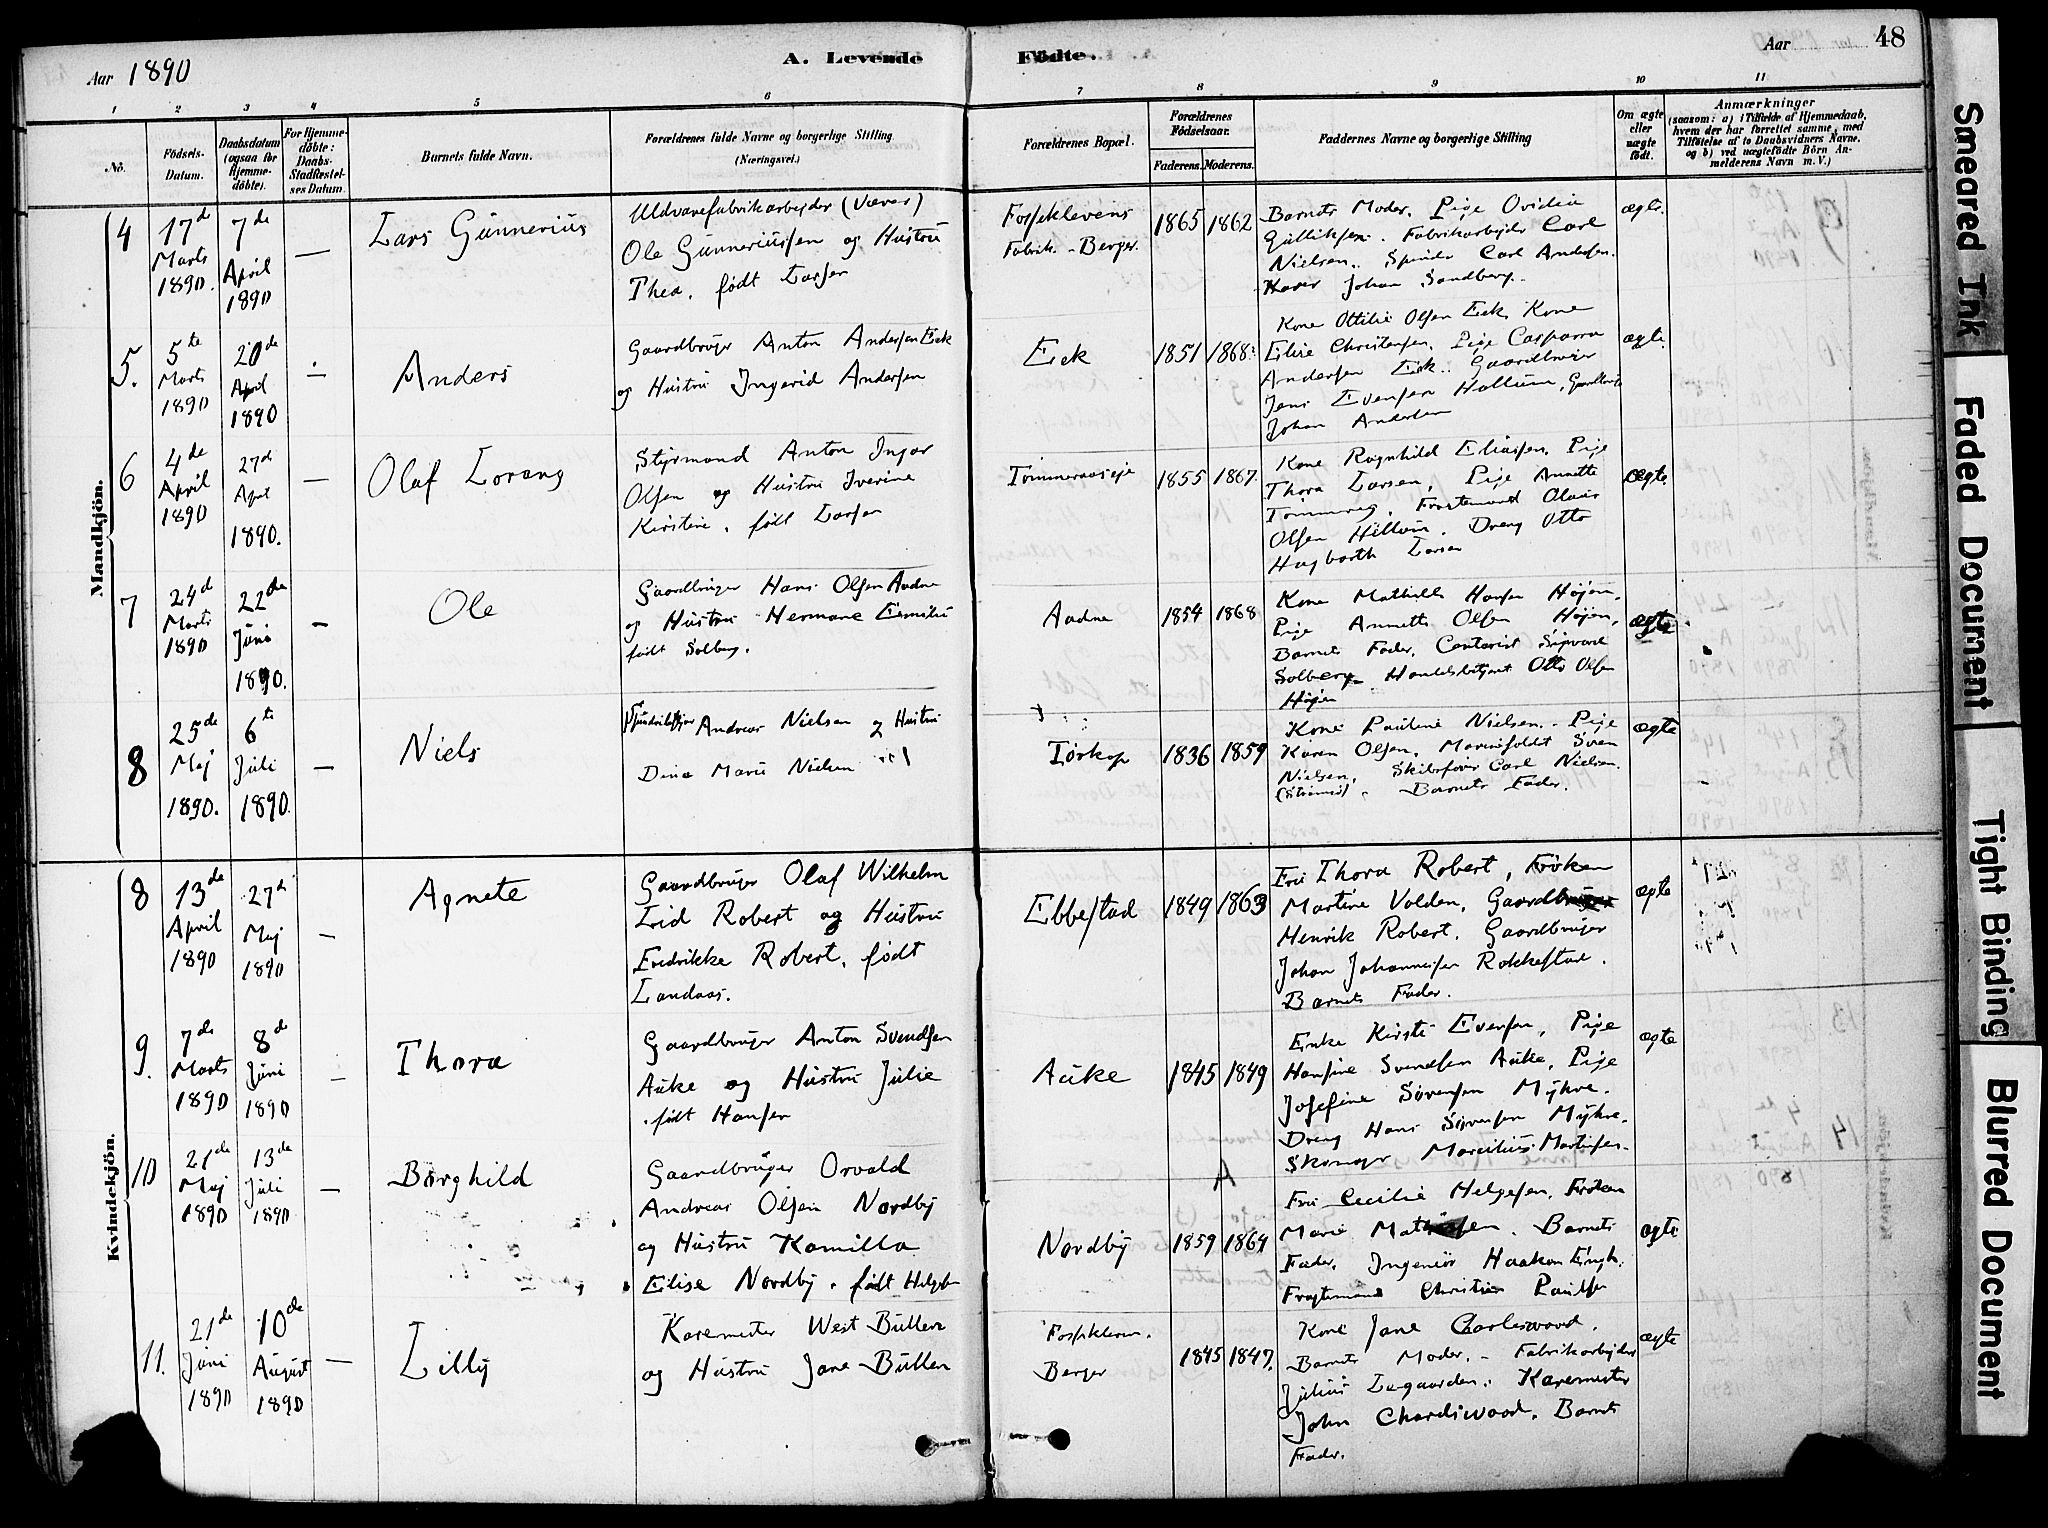 Aar 1890
A. Levende
Födte.
Aar
48
1
2
3
4
5
6
7
8
9
10
11
No.
Födsels-
Datum.
Daabsdatum
(ogsaa for
Hjemme-
döbte).
For Hjemme-
döbte:
Daabs-
Stadfæstel-
ses Datum.
Barnets fulde Navn.
Forældrenes fulde Navne og borgerlige Stilling
(Næringsvei.)
Forældrenes Bopæl.
Forældrenes
Födselsaar.
Faderens.
Moderens.
Faddernes Navne og borgerlige Stilling
Om ægte
eller
uægte
födt.
Anmærkninger
(saasom: a) i Tilfælde af Hjemmedaab,
hvem der har forrettet samme, med
Tilföielse af to Daabsvidners Navne.
og b) ved uægtefödte Börn An-
melderens Navn m. V.)
Mandkjön.
4
17de
Marts
1890.
7de
April
1890
—
Lars Gunnerius
Uldvarefabrikarbejder (Væver)
Ole Gunneriussen og Hustru
Thea, født Larsen
Fosseklevens
Fabrik - Berger.
1865
1862
Barnets Moder, Pige Ovidia
Gulliksen. Fabrikarbejder Carl
Nielsen. Carl Andersen.
Johan Sandberg.
ægte.
5.
5te
Marts
1890
20de
April
1890
—
Anders
Gaardbruger Anton Andersen Eek
og Hustru Ingerid Andersen
Eek
1851
1868.
Kone Ottilie Olsen Eek, Kone
Elise Christensen, Pige Casparra
Andersen Eek. Gaardbruger
Jens Evensen Hallum, Gaardbruger
Johan Andersen
ægte.
6
4de
April
1890
27de
April
1890.
—
Olaf Lorang
Styrmand Anton Ingvar
Olsen og Hustru Iverine
Kirstine, født Larsen
Tømmeraaseje
1855
1867.
Kone Ragnhild Eliassen, Pige
Thora Larsen, Pige Annette
Olsen Dreng Otto
Hagbarth Larsen
Ægte
7
24de
Marts
1890
22de
Juni
1890.
—
Ole
Gaardbruger Hans Olsen Aadne
og Hustru Hermane Emilie
født Solberg.
Aadne
1854
1868
Kone Mathilde Hansen Højen,
Pige Annette Olsen Højen,
Barnets Fader, Contorist Sigvard
Solberg Handelsbetjent Otto Olsen
Højen
ægte
8
25de
Maj
1890.
6te
Juli
1890.
—
Niels
Andreas Nielsen og Hustru
Dina Marie Nielsen
Tørkop
1836
1859
Kone Pauline Nielsen. Pige
Karen Olsen, Sven
Nielsen, Skibsfører Carl Nielsen.
(Strømmen). Barnets Fader.
ægte
Kvindekjön.
8
13de
April
1890
27de
Maj
1890
—
Agnete
Gaardbruger Olaf Wilhelm
Lid Robert og Hustru
Fredrikke Robert, født
Landaas.
Ebbestad
1849
1863
Fru Thora Robert, Frøken
Martine Volden, Gaardbruger
Henrik Robert, Gaardbruger
Johan Johannesen Rokkestad.
Barnets Fader.
ægte
9.
7de
Marts
1890
8de
Juni
1890
—
Thora
Gaardbruger Anton Svendsen
Auke og Hustru Julie
født Hansen
Auke
1845
1849
Enke Kirsti Evensen, Pige
Hansine Svendsen Auke, Pige
Josefine Sørensen Myhre.
Dreng Hans Sørensen Myhre.
Skomager Marcilius Martinsen.
ægte
10
21de
Maj
1890
13de
Juli
1890
—
Borghild
Gaardbruger Orvald
Andreas Olsen Nordby
og Hustru Kamilla
Elise Nordby, født Helgesen
Nordby
1859
1864
Fru Cecilie Helgesen, Frøken
Marie Mathisen. Barnets
Fader, Ingeniør Haakon Engh.
Fragtemand Christian Paulsen
ægte
11.
21de
Juni
1890
10de
August
1890
—
Lilly
Karemester West Bullen
og Hustru Jane Bullen
Fossekleven.
Berger
1845
1847.
Kone Jane Charleswood.
Barnets Moder. - Fabrikarbejder
Julius Legaarden. Karemester
John Charleswood. Barnets
Fader.
ægte
Smeared Ink
Faded Document
Tight Binding
Blurred Document